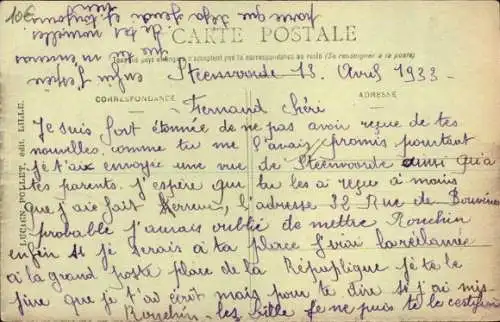 10€
CARTE POSTALE
Tous les pays étrangers n'acceptent pas la correspondance au recto (Se renseigner à la poste)
CORRESPONDANCE
ADRESSE
LUCIEN POLLET, édit. LILLE.
Steenvoorde 13 Avril 1933
Fernand chéri
Je suis fort étonnée de ne pas avoir reçue de tes
nouvelles comme tu me l'avais promis pourtant
je t'ai envoyée une vue de Steenvoorde ainsi qu'a
tes parents. j'espère que tu les a reçue a moins
que j'aie fait erreur, l'adresse 32 Rue de Bouvines
probable j'aurais oublié de mettre Ronchin
enfin si je serais a ta place j'irai la réclamée
a la grand poste place de la République je te le
jure que je t'ai écrit mais pour te dire si j'ai mis
Ronchin-les-Lille je ne puis te le certifier
enfin j'espère
que tu m'en
de tes nouvelles
parce que et toujours